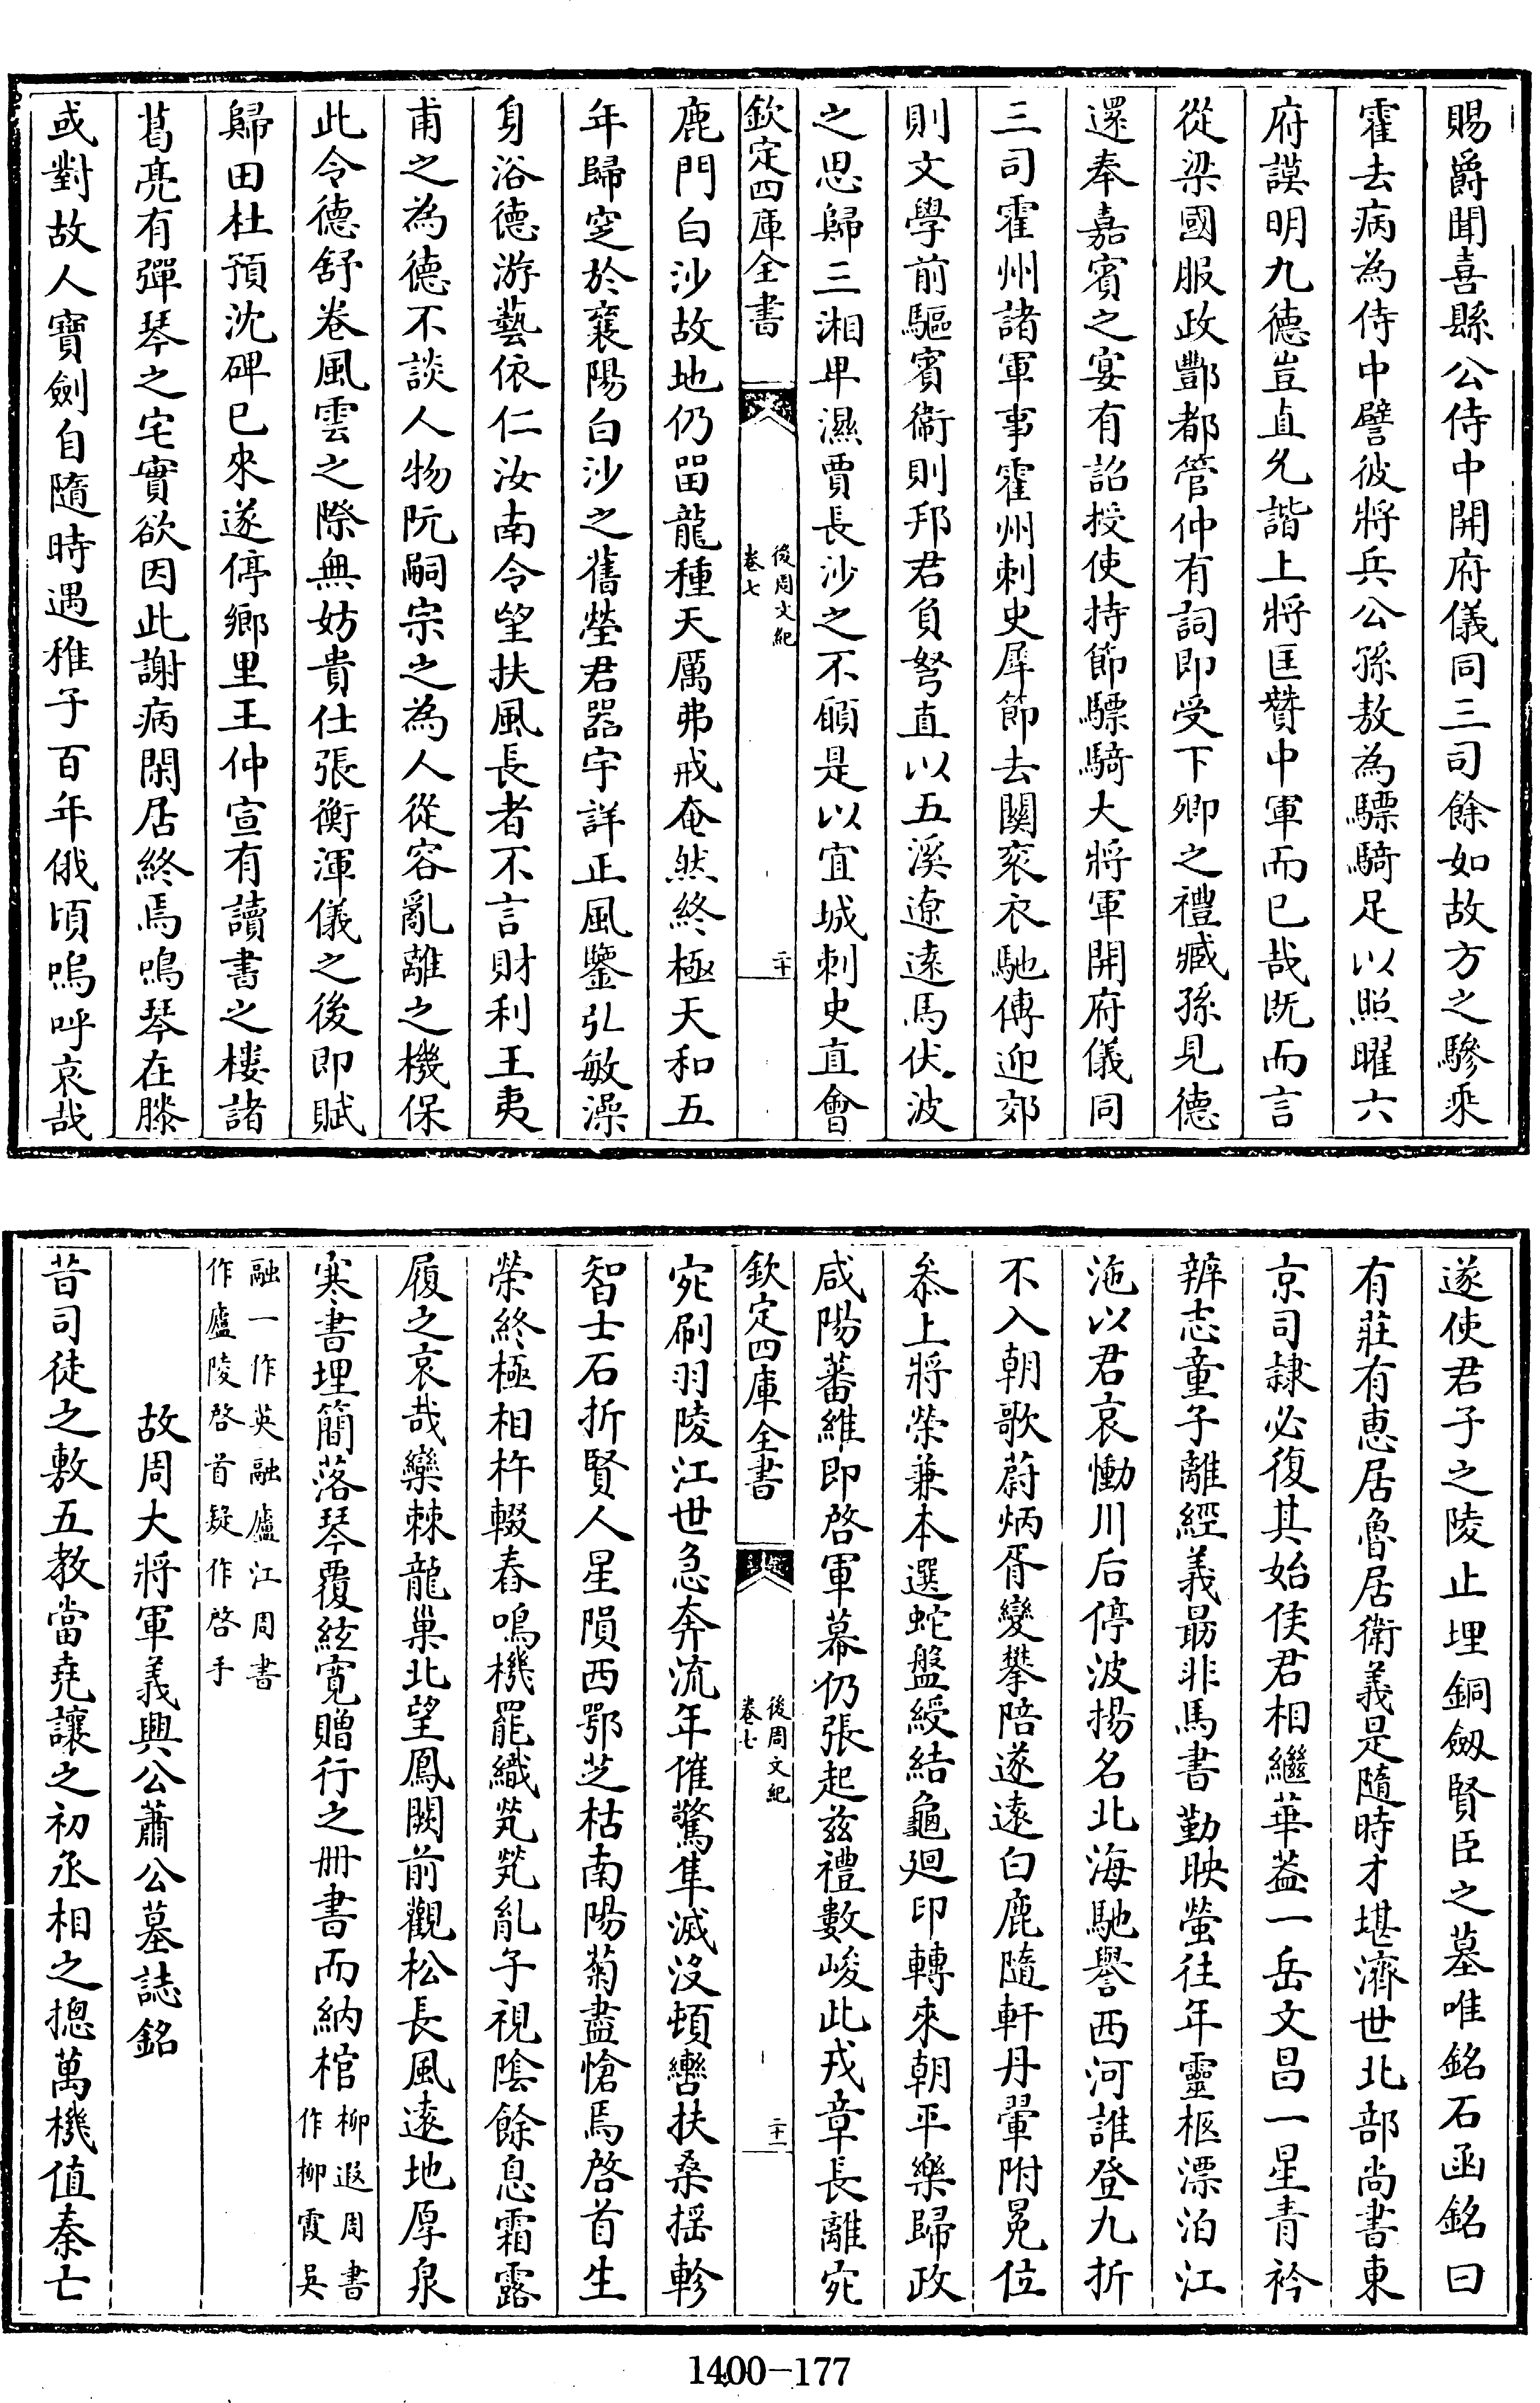 賜爵聞喜縣公侍中開府儀同三司餘如故方之驂乘
霍去病為侍中譬彼將兵公孫敖為驃騎足以照曜六
府謨明九德豈直允諧上將匡贊中軍而已哉既而言
從梁國服政酆都管仲有詞即受下卿之禮臧孫見德
還奉嘉賓之宴有詔授使持節驃騎大將軍開府儀同
三司霍州諸軍事霍州刺史犀節去關衮衣馳傳迎郊
則文學前驅賓衞則邦君負弩直以五溪遼遠馬伏波
之思歸三湘卑濕賈長沙之不願是以宜城刺史直會
欽定四庫全書
後周文紀
卷七
二十
鹿門白沙故地仍留龍種天厲弗戒奄然終極天和五
年歸窆於襄陽白沙之舊塋君器宇詳正風鑒弘敏澡
身浴德游藝依仁汝南令望扶風長者不言財利王夷
甫之為德不談人物阮嗣宗之為人從容亂離之機保
此令德舒卷風雲之際無妨貴仕張衡渾儀之後即賦
歸田杜預沈碑已來遂停鄉里王仲宣有讀書之樓諸
葛亮有彈琴之宅實欲因此謝病閑居終焉鳴琴在膝
或對故人寶劍自隨時遇稚子百年俄頃嗚呼哀哉
遂使君子之陵止埋銅劔賢臣之墓唯銘石函銘曰
有莊有惠居魯居衛義是隨時才堪濟世北部尚書東
京司隸必復其始侯君相繼華葢一岳文昌一星青衿
辨志童子離經義朂非馬書勤映螢往年靈柩漂泊江
沲以君哀慟川后停波揚名北海馳譽西河誰登九折
不入朝歌蔚炳胥變攀陪遂遠白鹿隨軒丹翬附冕位
叅上將榮兼本選蛇盤綬結龜廻印轉來朝平樂歸政
咸陽蕃維即啓軍幕仍張起兹禮數峻此戎章長離宛
欽定四庫全書
後周文紀
卷七
二十一
宛刷羽陵江世急奔流年催驚隼滅沒頓轡扶桑揺軫
智士石折賢人星隕西鄂芝枯南陽菊盡愴焉啓首生
榮終極相杵輟舂鳴機罷織焭焭亂子視陰餘息霜露
履之哀哉欒棘龍巢北望鳳闕前觀松長風遠地厚泉
寒書埋簡落琴覆絃寛贈行之冊書而納棺柳遐周書
作柳霞吳
融一作英融廬江周書
作廬陵啓首疑作啓手
故周大將軍義興公蕭公墓誌銘
昔司徒之敷五教當堯讓之初丞相之摠萬機值秦亡
1400-177